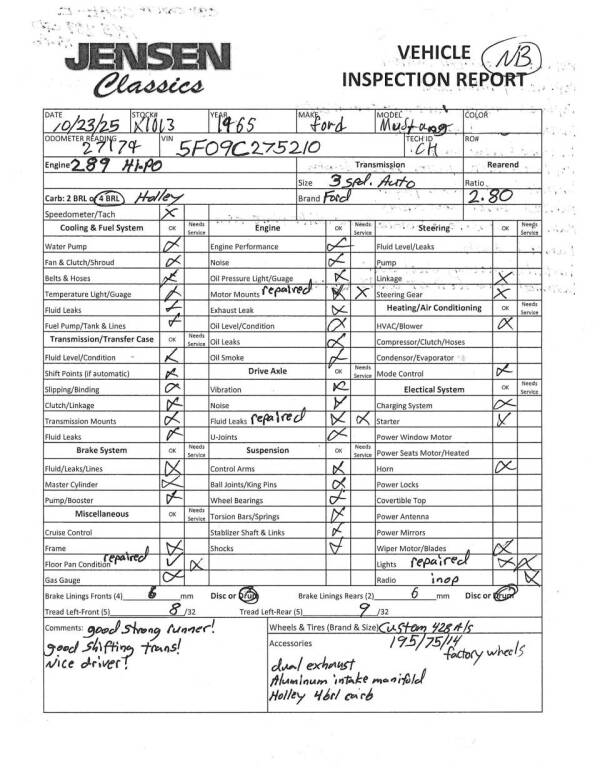 JENSEN
Classics
VEHICLE
INSPECTION REPORT
NB
DATE 10/23/25 STOCK# X1013 YEAR 1965 MAKE Ford MODEL Mustang COLOR
ODOMETER READING 27174 VIN 5F09C275210 TECH ID CH RO#
Engine 289 Hi-Po Transmission Rearend
Size 3 spd. Auto Ratio
Carb: 2 BRL or 4 BRL Holley Brand Ford 2.80
Speedometer/Tach X
Cooling & Fuel System OK Needs Service Engine OK Needs Service Steering OK Needs Service
Water Pump X Engine Performance X Fluid Level/Leaks
Fan & Clutch/Shroud X Noise X Pump
Belts & Hoses X Oil Pressure Light/Guage X Linkage X
Temperature Light/Guage X Motor Mounts repaired X X Steering Gear X
Fluid Leaks X Exhaust Leak X Heating/Air Conditioning OK Needs Service
Fuel Pump/Tank & Lines X Oil Level/Condition X HVAC/Blower X
Transmission/Transfer Case OK Needs Service Oil Leaks X Compressor/Clutch/Hoses
Fluid Level/Condition X Oil Smoke X Condensor/Evaporator
Shift Points (if automatic) X Drive Axle OK Needs Service Mode Control X
Slipping/Binding X Vibration X Electical System OK Needs Service
Clutch/Linkage X Noise X Charging System X
Transmission Mounts X Fluid Leaks repaired X X Starter X
Fluid Leaks X U-Joints X Power Window Motor
Brake System OK Needs Service Suspension OK Needs Service Power Seats Motor/Heated
Fluid/Leaks/Lines X Control Arms X Horn X
Master Cylinder X Ball Joints/King Pins X Power Locks
Pump/Booster X Wheel Bearings X Covertible Top
Miscellaneous OK Needs Service Torsion Bars/Springs X Power Antenna
Cruise Control Stablizer Shaft & Links X Power Mirrors
Frame X Shocks X Wiper Motor/Blades X
Floor Pan Condition repaired X X Lights repaired X X
Gas Gauge X Radio inop X
Brake Linings Fronts (4) 6 mm Disc or Drum Brake Linings Rears (2) 6 mm Disc or Drum
Tread Left-Front (5) 8 /32 Tread Left-Rear (5) 9 /32
Comments: good strong runner!
good shifting trans!
Nice driver!
Wheels & Tires (Brand & Size) Custom 428 A/s
195/75/14
factory wheels
Accessories
dual exhaust
Aluminum intake manifold
Holley 4brl carb